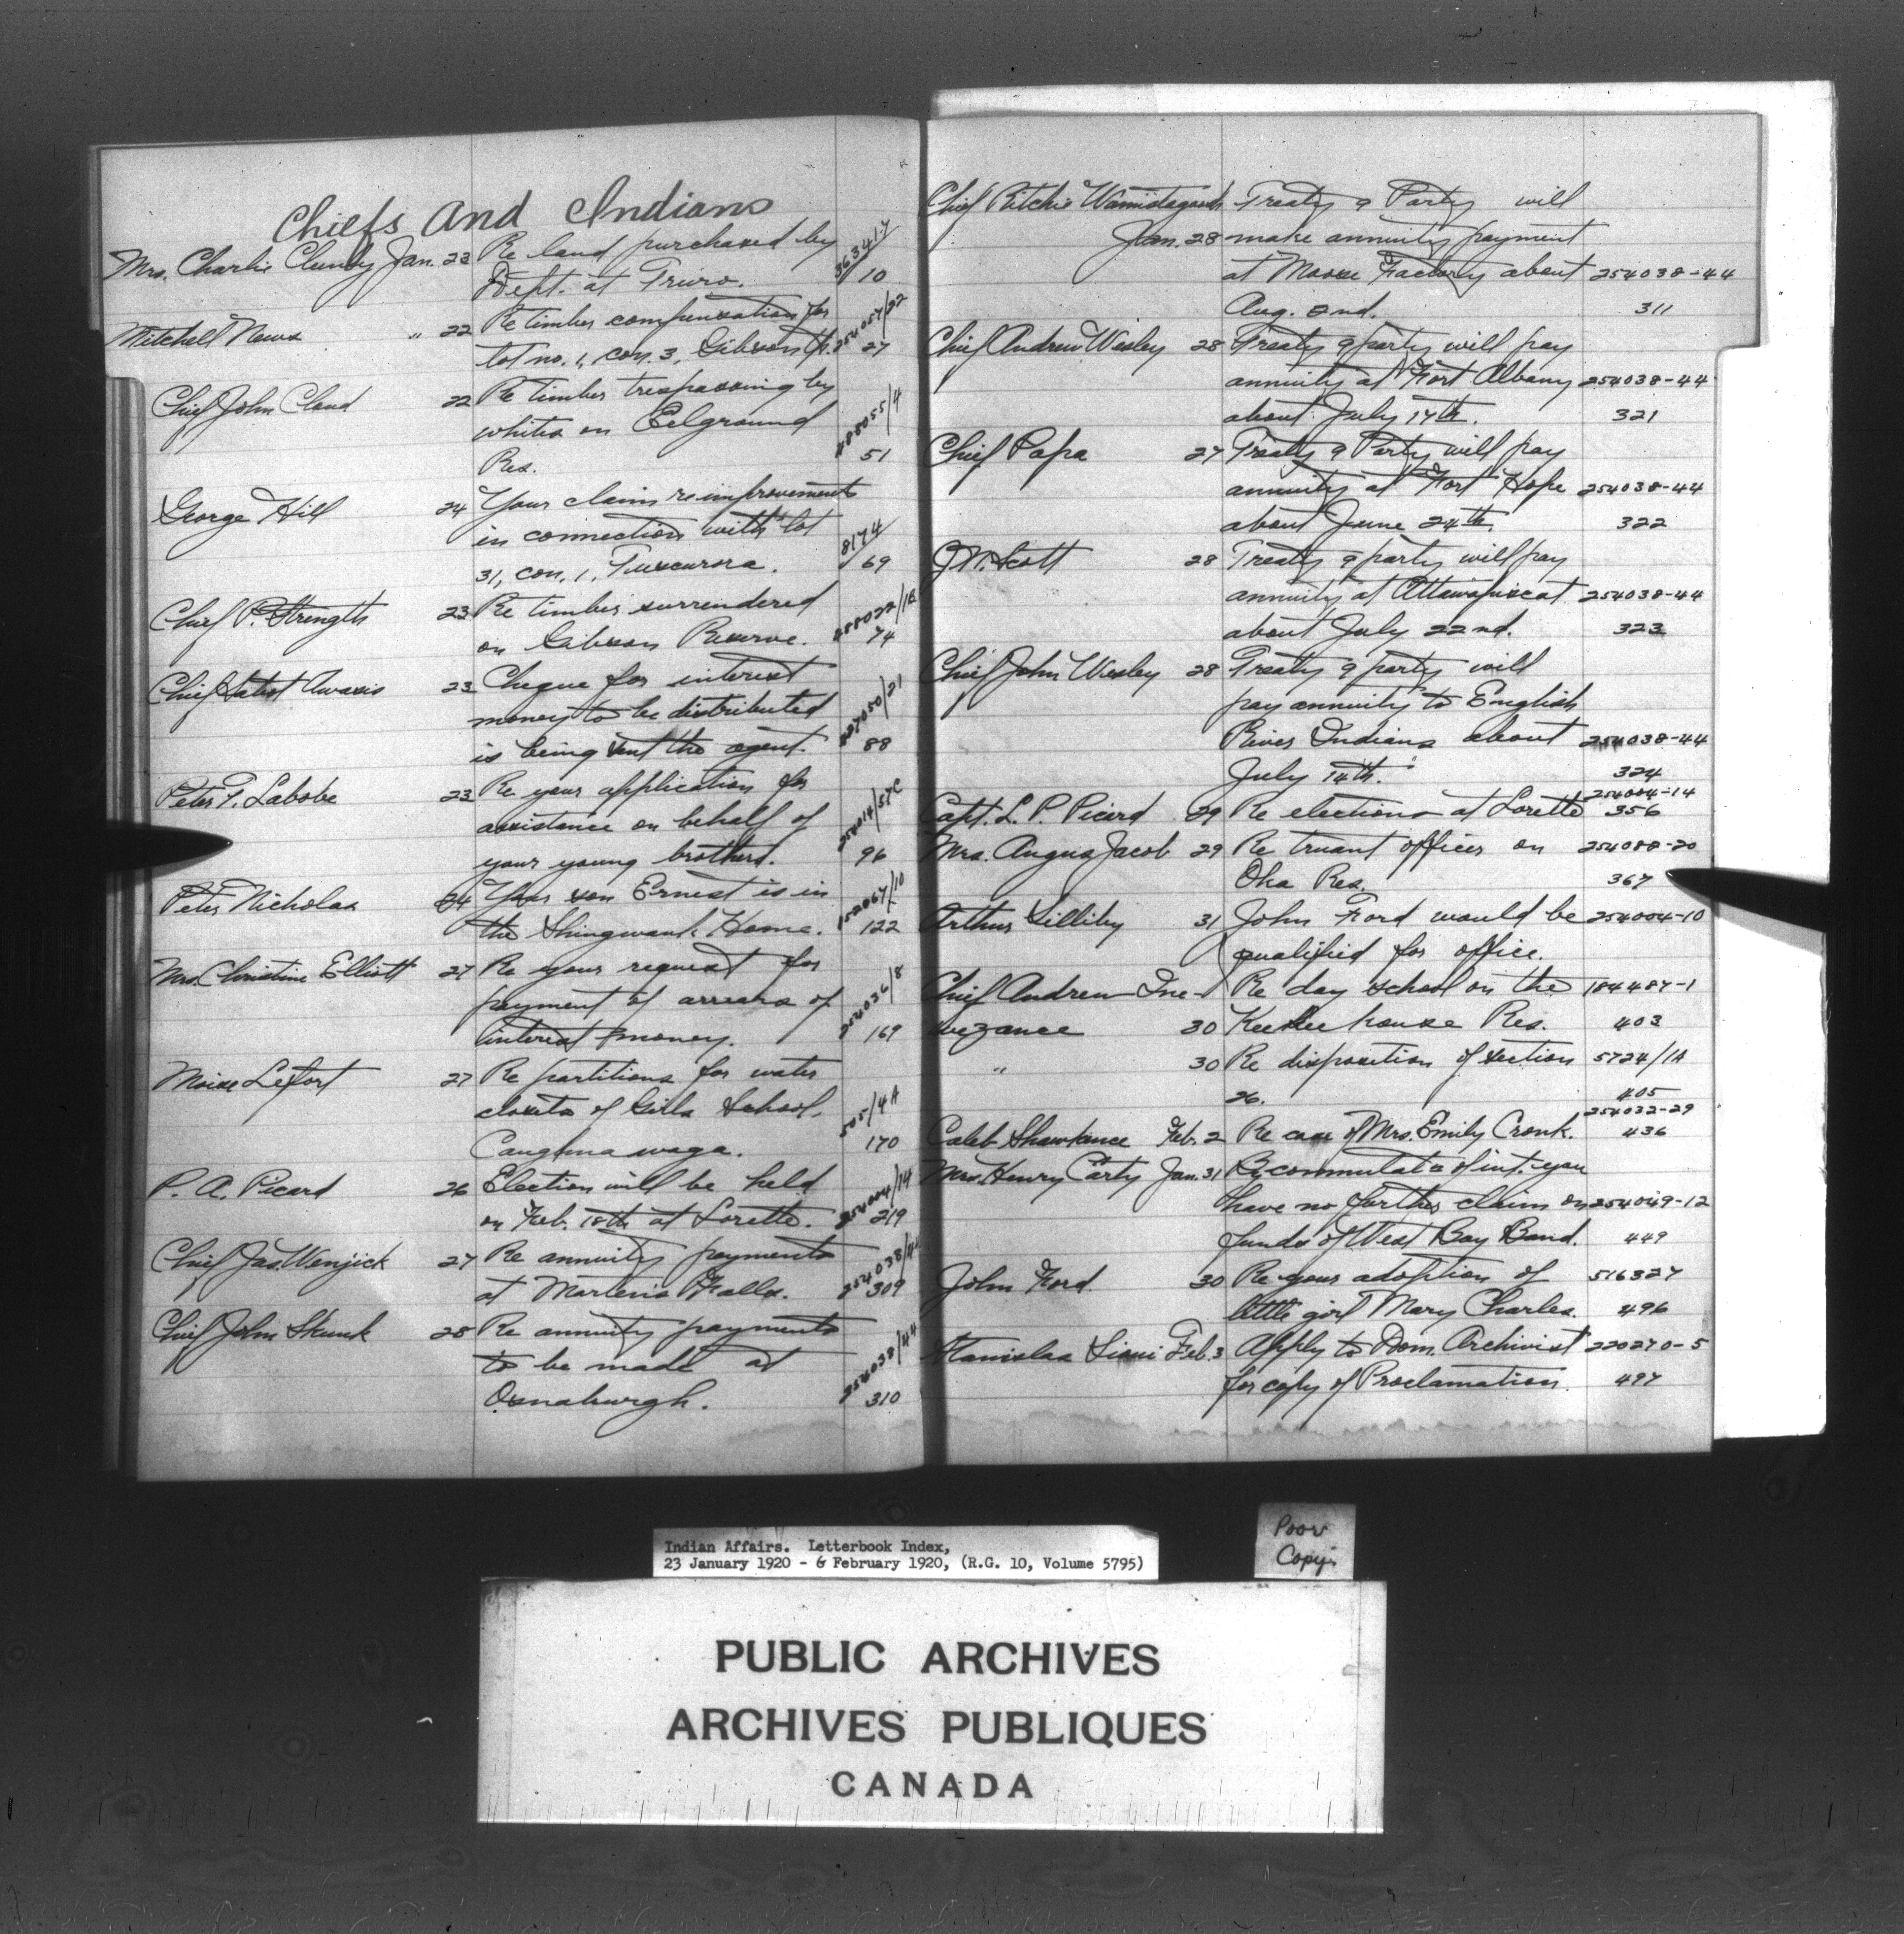 Chiefs and Indians
Mrs. Charlie Clumby Jan. 23 Re land purchased by 363417
Dept. at Truro. 10
Mitchell News " 22 Re timber compensation for 254057/22
lot no. 1, con. 3, Gibson 27
Chief John Cloud 22 Re timber trespassing by
whites on Eelground 288055/4
Res. 51
George Hill 24 Your claim re improvements
in connection with lot 8174
31, con. 1, Tuscurora. 69
Chief P. Strength 23 Re timber surrendered 288022/1B
on Gibson Reserve. 74
Chief Awasis 23 Cheque for interest
money to be distributed 227050/21
is being sent the agent. 88
Peter T. Labobe 23 Re your application for
assistance on behalf of 254014/57C
your young brothers. 96
Peter Nicholas 24 Your son Ernest is in 152067/10
the Shingwauk Home. 122
Mrs. Christine Elliott 27 Re your request for
payment of arrears of 254036/8
interest money. 169
Moise Lefort 27 Re partitions for water
closets of Girls School, 505/4A
Caughnawaga. 170
P. A. Picard 26 Election will be held 254004/14
on Feb. 18th at Lorette. 219
Chief Jas. Wenjick 27 Re annuity payments 254038/44
at Marten's Falls. 309
Chief John Skunk 28 Re annuity payments
to be made at 254038/44
Osnaburgh. 310
Chief Ritchie Treaty 9 Party will
Jan. 28 make annuity payment
at Moose Factory about 254038-44
Aug. 2nd. 311
Chief Andrew Wesley 28 Treaty 9 party will pay
annuity at Fort Albany 254038-44
about July 17th. 321
Chief Papa 27 Treaty 9 Party will pay
annuity at Fort Hope 254038-44
about June 24th. 322
J. W. Scott 28 Treaty 9 party will pay
annuity at Attawapiscat 254038-44
about July 22nd. 323
Chief John Wesley 28 Treaty 9 party will
pay annuity to English
River Indians about 254038-44
July 14th. 324
254004-14
Capt. L. P. Picard 29 Re elections at Lorette 356
Mrs. Angus Jacob 29 Re truant officer on 254088-20
Oka Res. 367
Arthur Lilliby 31 John Ford would be 254004-10
qualified for office.
Chief Andrew Ine- Re day school on the 184487-1
wezance 30 Keesee house Res. 403
" 30 Re disposition of section 5724/1A
26. 405
254032-29
Caleb Shawkence Feb. 2 Re case of Mrs. Emily Cronk. 436
Mrs. Henry Carty Jan. 31 By commutat'n of int. you
have no further claim on 254049-12
funds of West Bay Band. 449
John Ford 30 Re your adoption of 516327
little girl Mary Charles. 496
Stanislas Sioui Feb. 3 Apply to Dom. Archivist 220270-5
for copy of Proclamation. 497
Indian Affairs. Letterbook Index,
23 January 1920 - 6 February 1920, (R.G. 10, Volume 5795)
Poor
Copy
PUBLIC ARCHIVES
ARCHIVES PUBLIQUES
CANADA